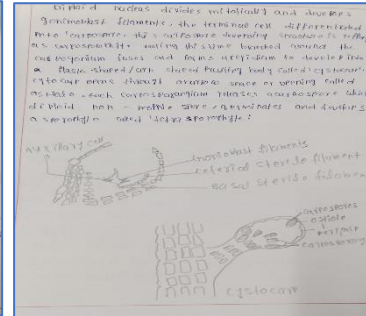 diploid nucleus divides mitotically and develops
gonimoblast filaments. the terminal cell differentiated
into carpospore. this carpospore diverging structure is
as carposporophyte. during this time branched around the
carposporium fuses and forms to develop into
a flask shaped/urn shaped fruiting body called 'cystocarp'.
cytocarp opens through space or opening called
as ostiole. each carposporangium releases acarpospore
diploid non - motile spore germinates and
a sporophyte called 'tetra sporophyte'.
auxiliary cell
Gonimoblast filaments
sterile filament
Basal sterile filamen
carpospores
ostiole
pericarp
cystocarp